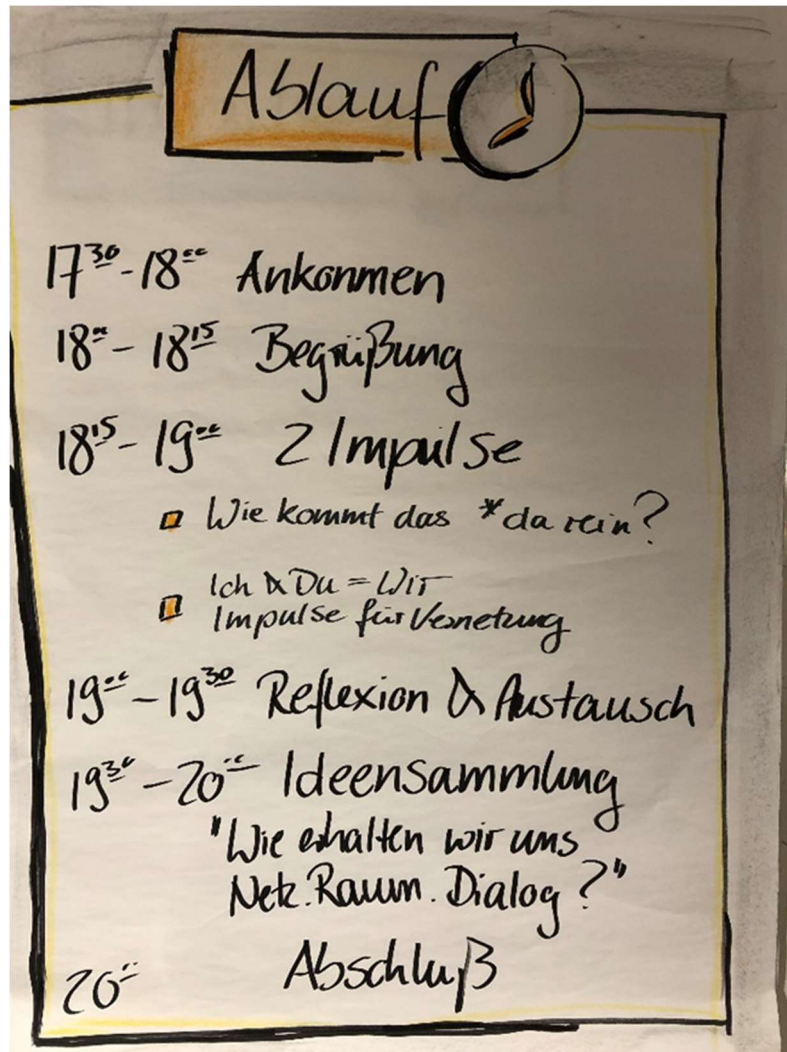 Ablauf
17³⁰ - 18⁰⁰ Ankommen
18⁰⁰ - 18¹⁵ Begrüßung
18¹⁵ - 19⁰⁰ 2 Impulse
Wie kommt das *da rein?
Ich & Du = Wir
Impulse für Vernetzung
19⁰⁰ - 19³⁰ Reflexion & Austausch
19³⁰ - 20⁰⁰ Ideensammlung
"Wie erhalten wir uns
Netz.Raum.Dialog?"
20⁰⁰ Abschluß